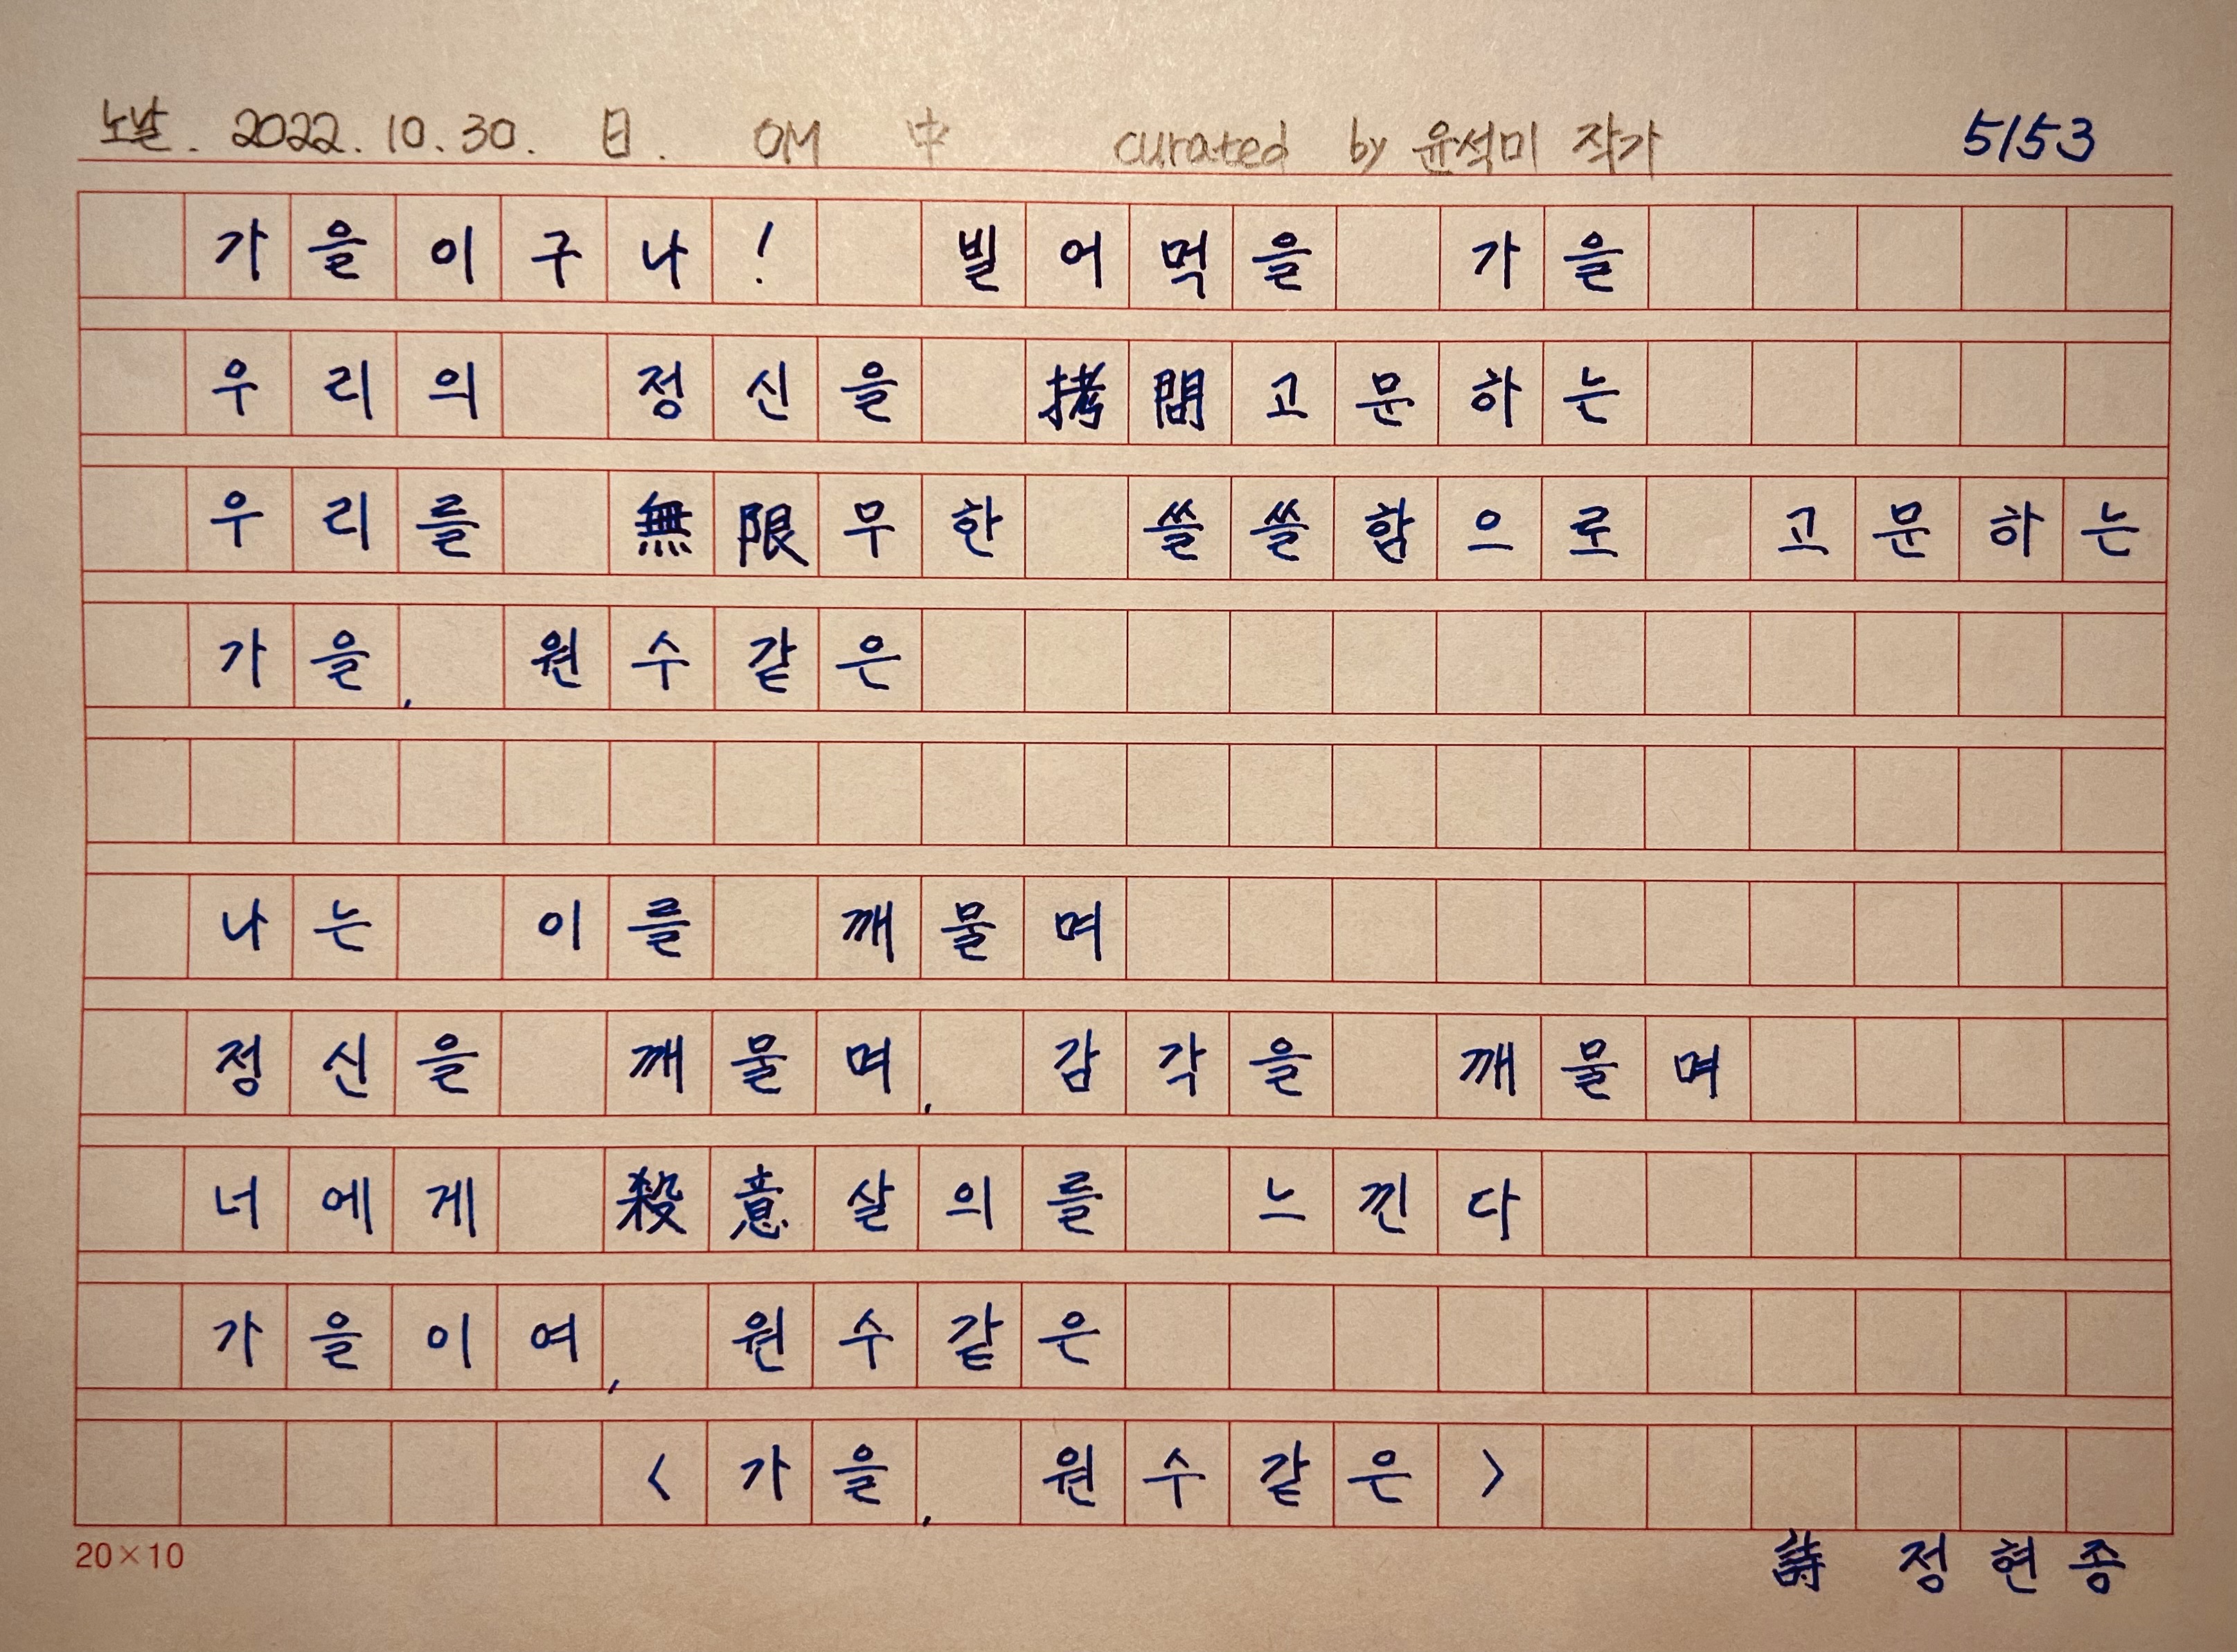 노날. 2022. 10. 30. 日. OM 中 curated by 윤석미 작가 5153
가을이구나! 빌어먹을 가을
우리의 정신을 拷問고문하는
우리를 無限무한 쓸쓸함으로 고문하는
가을, 원수같은
나는 이를 깨물며
정신을 깨물며, 감각을 깨물며
너에게 殺意살의를 느낀다
가을이여, 원수같은
<가을, 원수같은>
20×10
詩 정현종